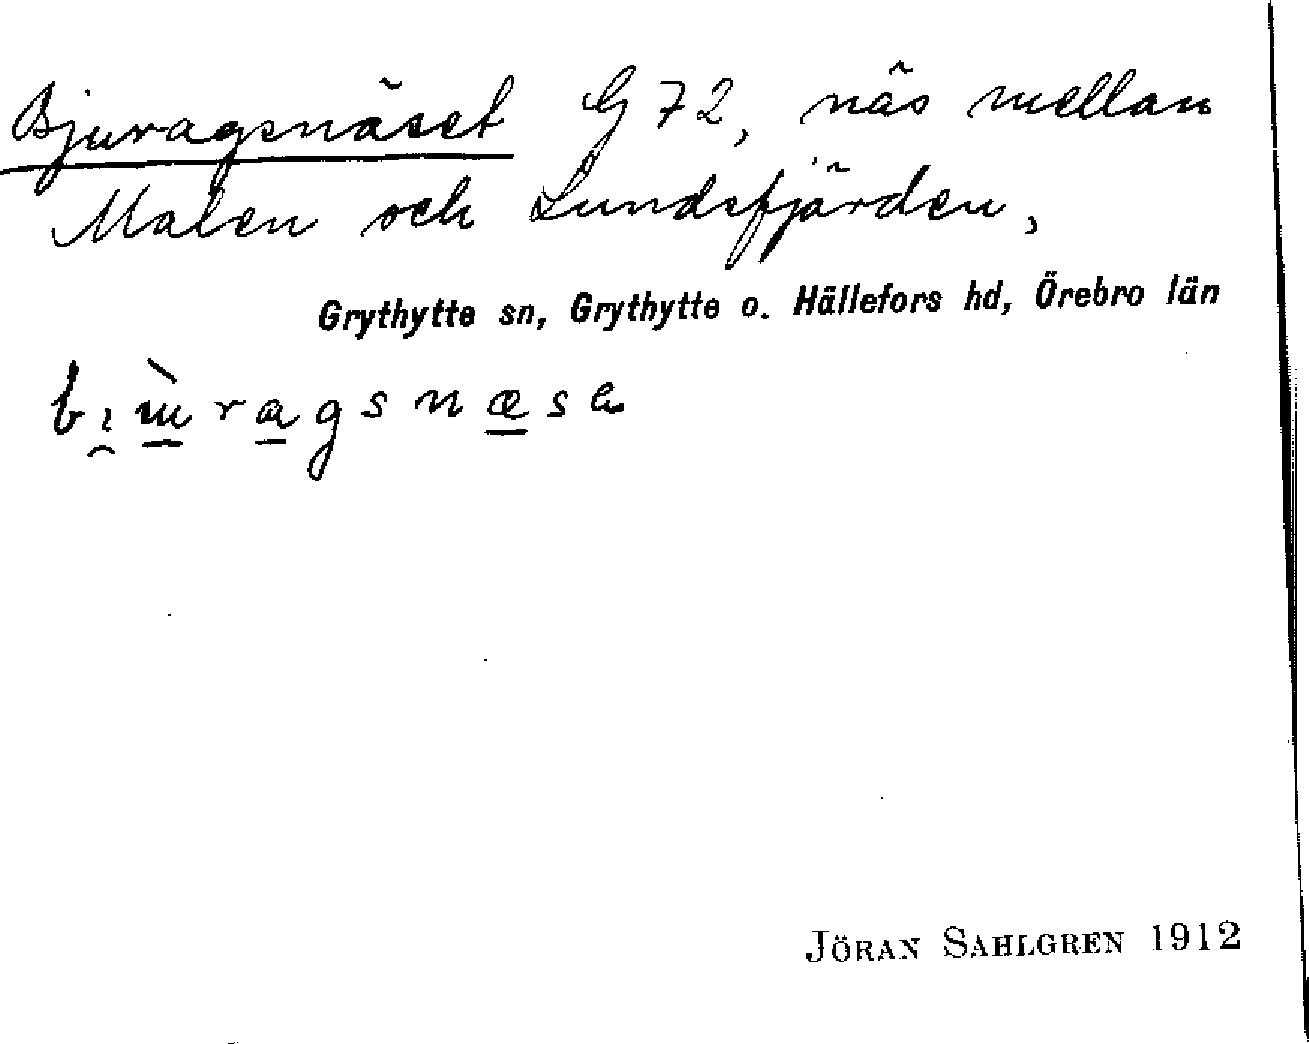 Bjuragsnäset G 72, näs mellan
Malen och Lundsfjärden,
Grythytte sn, Grythytte o. Hällefors hd, Örebro län
JÖRAN SAHLGREN 1912